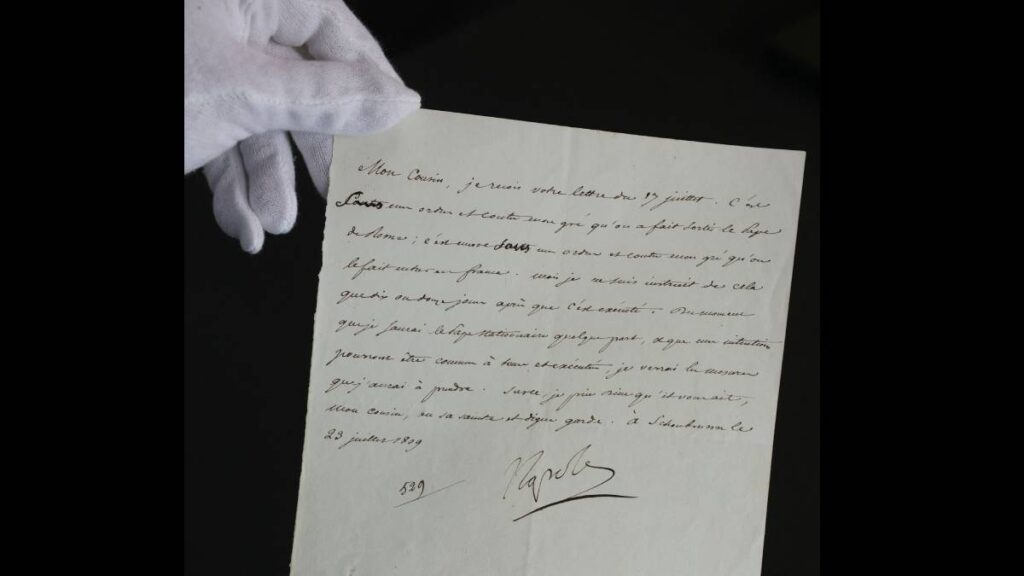 Mon Cousin, je reçois votre lettre du 17 juillet. C'est
Sans mon ordre et contre mon gré qu'on a fait sortir le Pape
de Rome; c'est encore Sans mon ordre et contre mon gré qu'on
le fait entrer en france. mais je ne suis instruit de cela
que dix ou douze jours après que c'est exécuté. Du moment
que je saurai le Pape stationnaire quelque part, et que mes intentions
pourront être connues à tems et exécutées, je verrai les mesures
que j'aurai à prendre. Sur ce, je prie Dieu qu'il vous ait,
Mon cousin, en sa sainte et digne garde. à Schoenbrunn le
23 juillet 1809
529 Napole